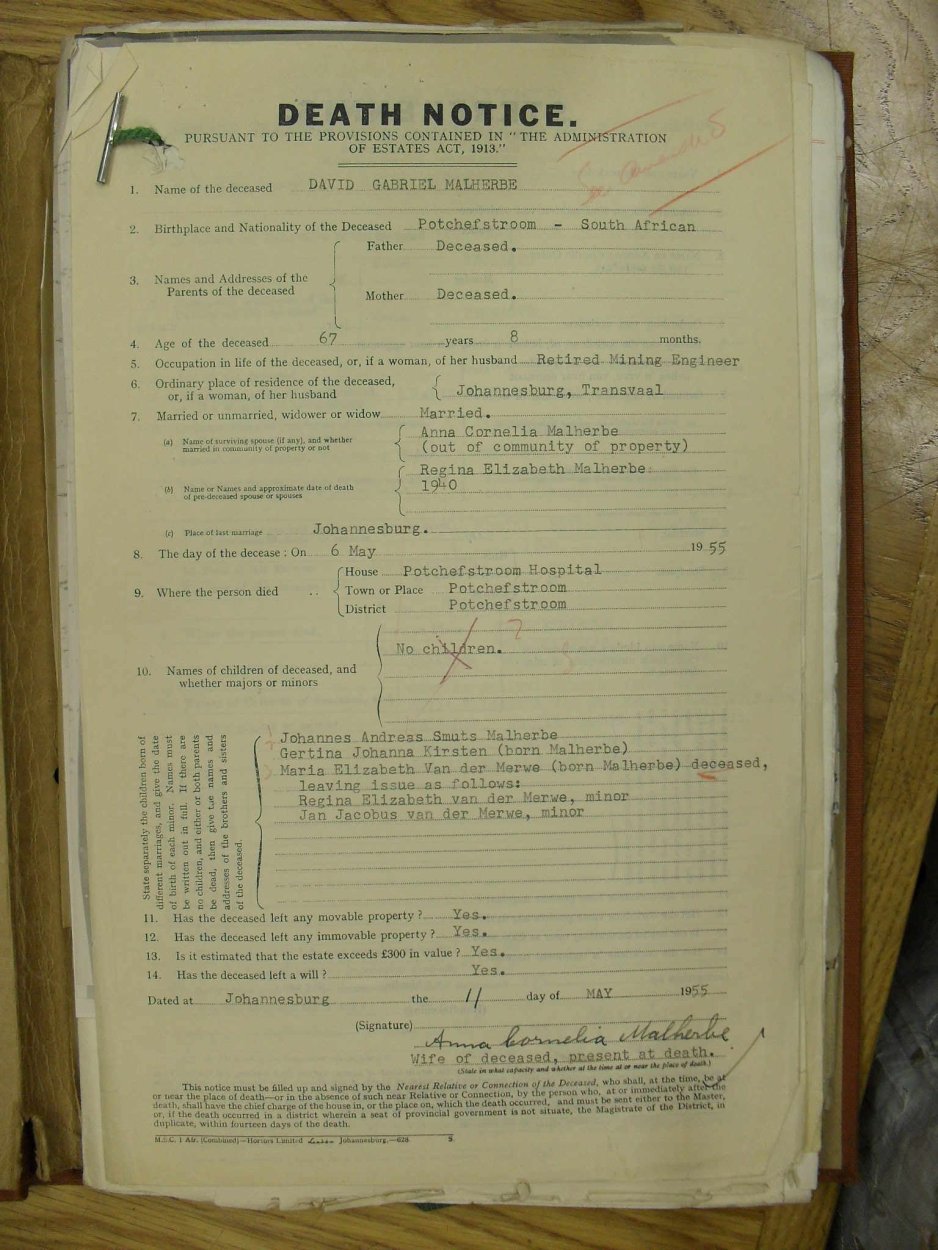 DEATH NOTICE.
PURSUANT TO THE PROVISIONS CONTAINED IN "THE ADMINISTRATION
OF ESTATES ACT, 1913."
1. Name of the deceased DAVID GABRIEL MALHERBE
2. Birthplace and Nationality of the Deceased Potchefstroom - South African
3. Names and Addresses of the Parents of the deceased
Father Deceased.
Mother Deceased.
4. Age of the deceased 67 years 8 months.
5. Occupation in life of the deceased, or, if a woman, of her husband Retired Mining Engineer
6. Ordinary place of residence of the deceased,
or, if a woman, of her husband
Johannesburg, Transvaal
7. Married or unmarried, widower or widow Married.
(a) Name of surviving spouse (if any), and whether
married in community of property or not
Anna Cornelia Malherbe
(out of community of property)
(b) Name or Names and approximate date of death
of pre-deceased spouse or spouses
Regina Elizabeth Malherbe:
1940
(c) Place of last marriage Johannesburg.
8. The day of the decease : On 6 May 1955
9. Where the person died ..
House Potchefstroom Hospital
Town or Place Potchefstroom
District Potchefstroom
10. Names of children of deceased, and
whether majors or minors
?
No children.
State separately the children born of
different marriages, and give the date
of birth of each minor. Names must
be written out in full. If there are
no children, and either or both parents
be dead, then give the names and
addresses of the brothers and sisters
of the deceased.
Johannes Andreas Smuts Malherbe
Gertina Johanna Kirsten (born Malherbe)
Maria Elizabeth Van der Merwe (born Malherbe) deceased,
leaving issue as follows:
Regina Elizabeth van der Merwe, minor
Jan Jacobus van der Merwe, minor
11. Has the deceased left any movable property ? Yes.
12. Has the deceased left any immovable property ? Yes.
13. Is it estimated that the estate exceeds £300 in value ? Yes.
14. Has the deceased left a will ? Yes.
Dated at Johannesburg the 11 day of MAY 1955
(Signature) Anna Cornelia Malherbe
Wife of deceased, present at death.
(State in what capacity and whether at the time at or near the place of death.)
This notice must be filled up and signed by the Nearest Relative or Connection of the Deceased, who shall, at the time, be at
or near the place of death—or in the absence of such near Relative or Connection, by the person who, at or immediately after the
death, shall have the chief charge of the house in, or the place on, which the death occurred, and must be sent either to the Master,
or, if the death occurred in a district wherein a seat of provincial government is not situate, the Magistrate of the District, in
duplicate, within fourteen days of the death.
M.S.C. 1 Afr. (Combined)—Hortors Limited Johannesburg.—628 S.